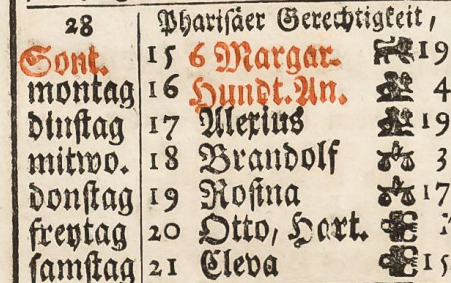 28 Pharisäer Gerechtigkeit,
Sont. 15 6 Margar. 19
montag 16 Hundt. An. 4
dinstag 17 Alexius 19
mitwo. 18 Brandolf 3
donstag 19 Rosina 17
freytag 20 Otto, Hart.
samstag 21 Cleva 15